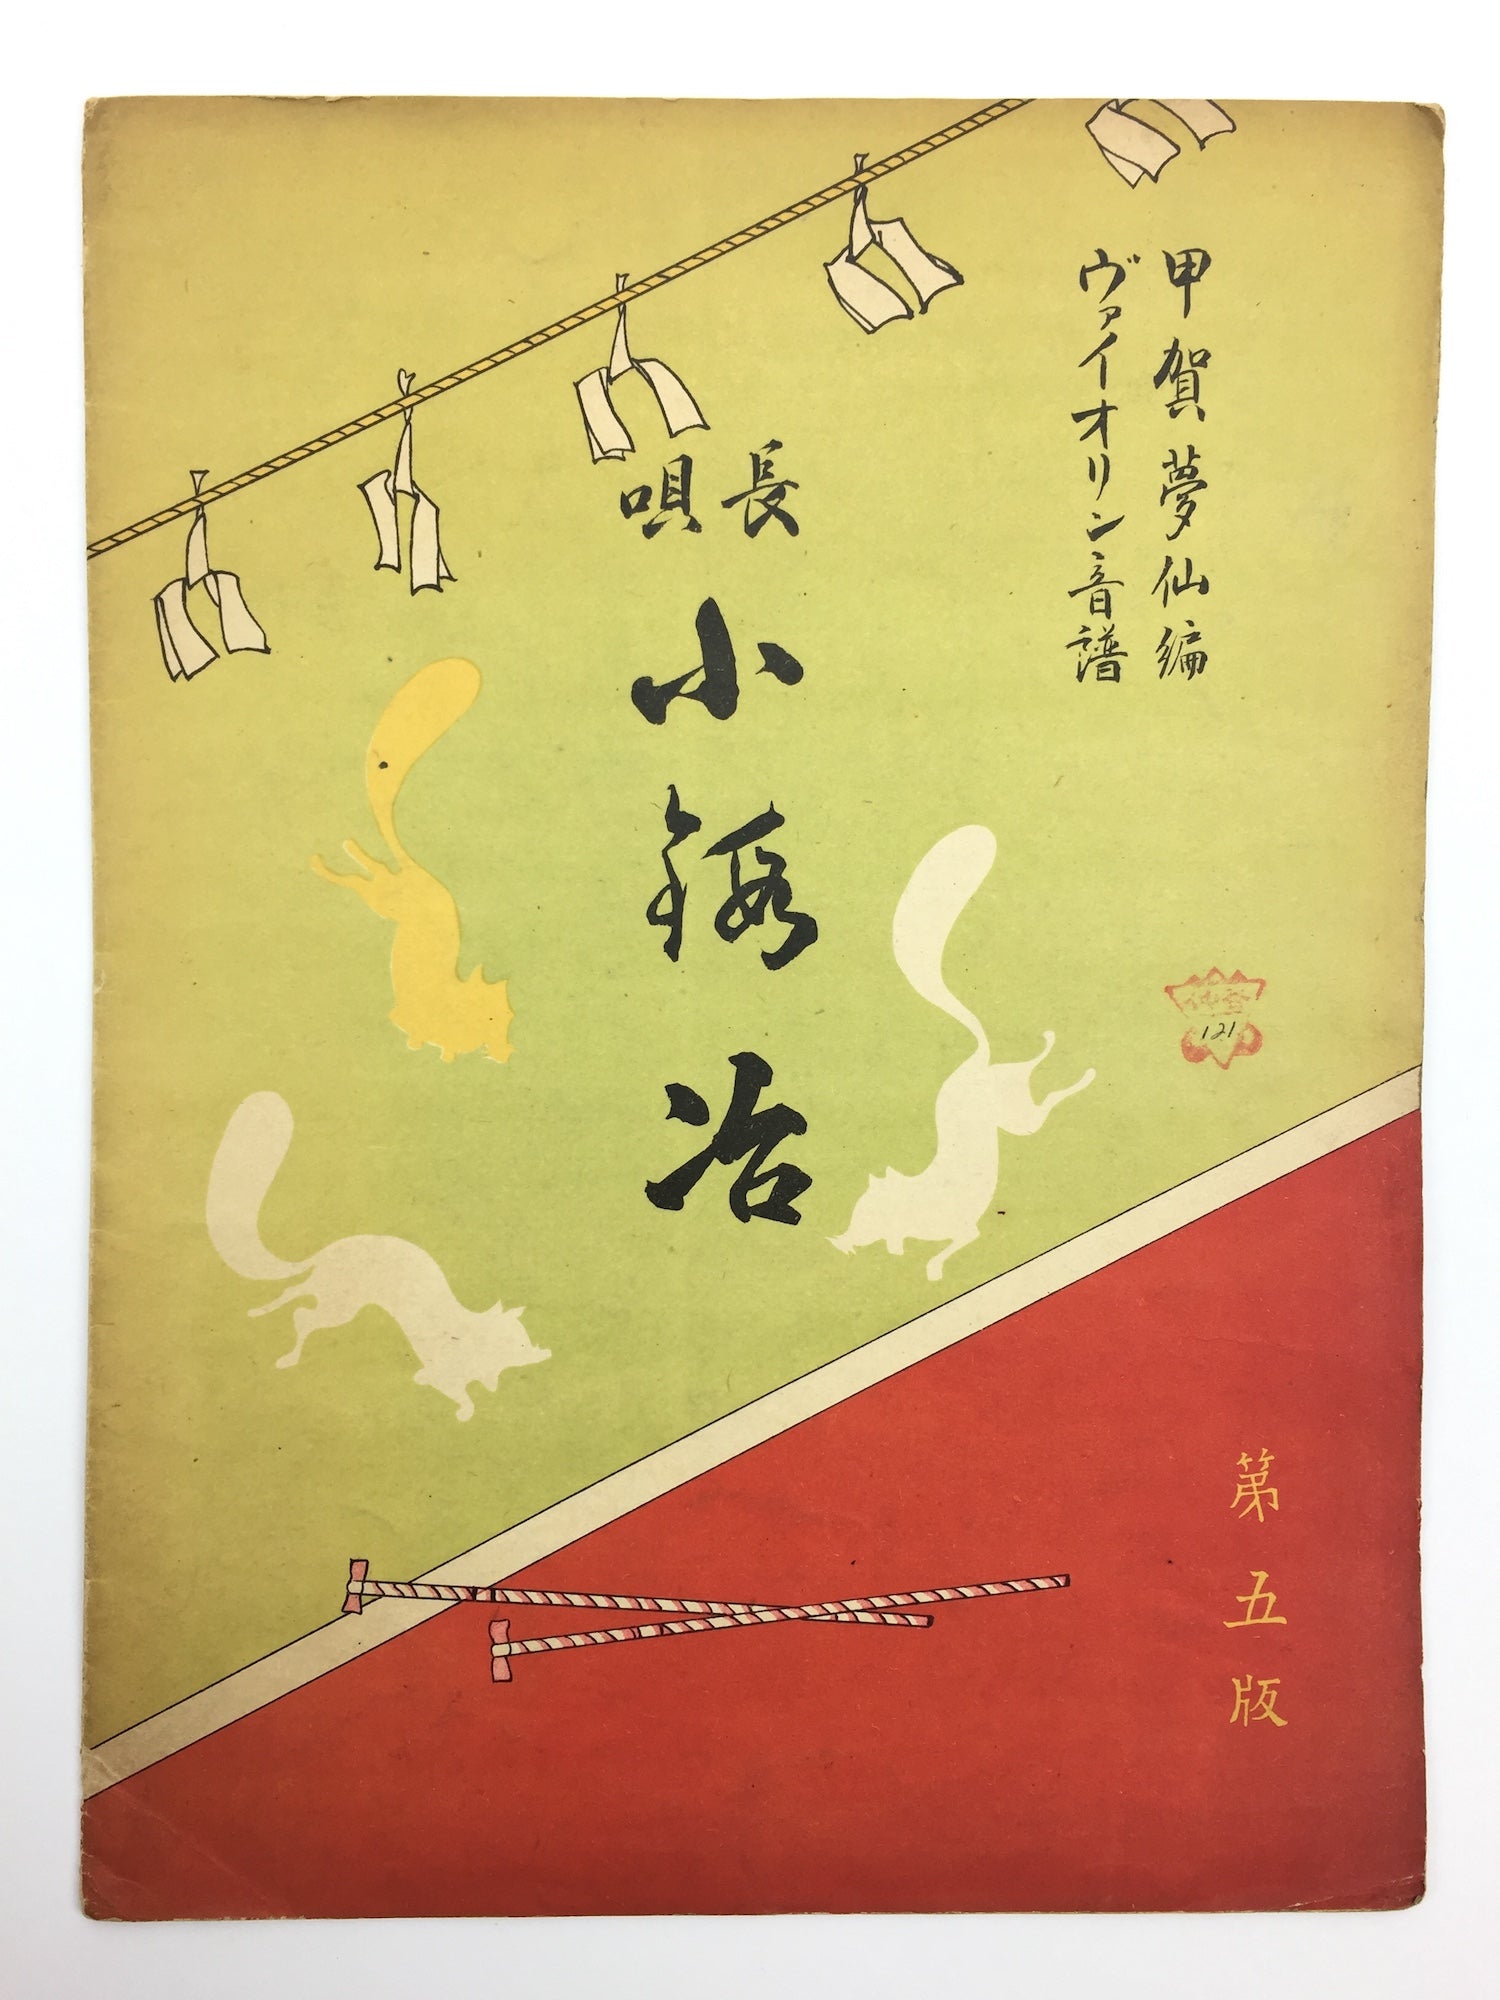 甲賀夢仙編
ヴァイオリン音譜
長唄
小鍛冶
121
第五版